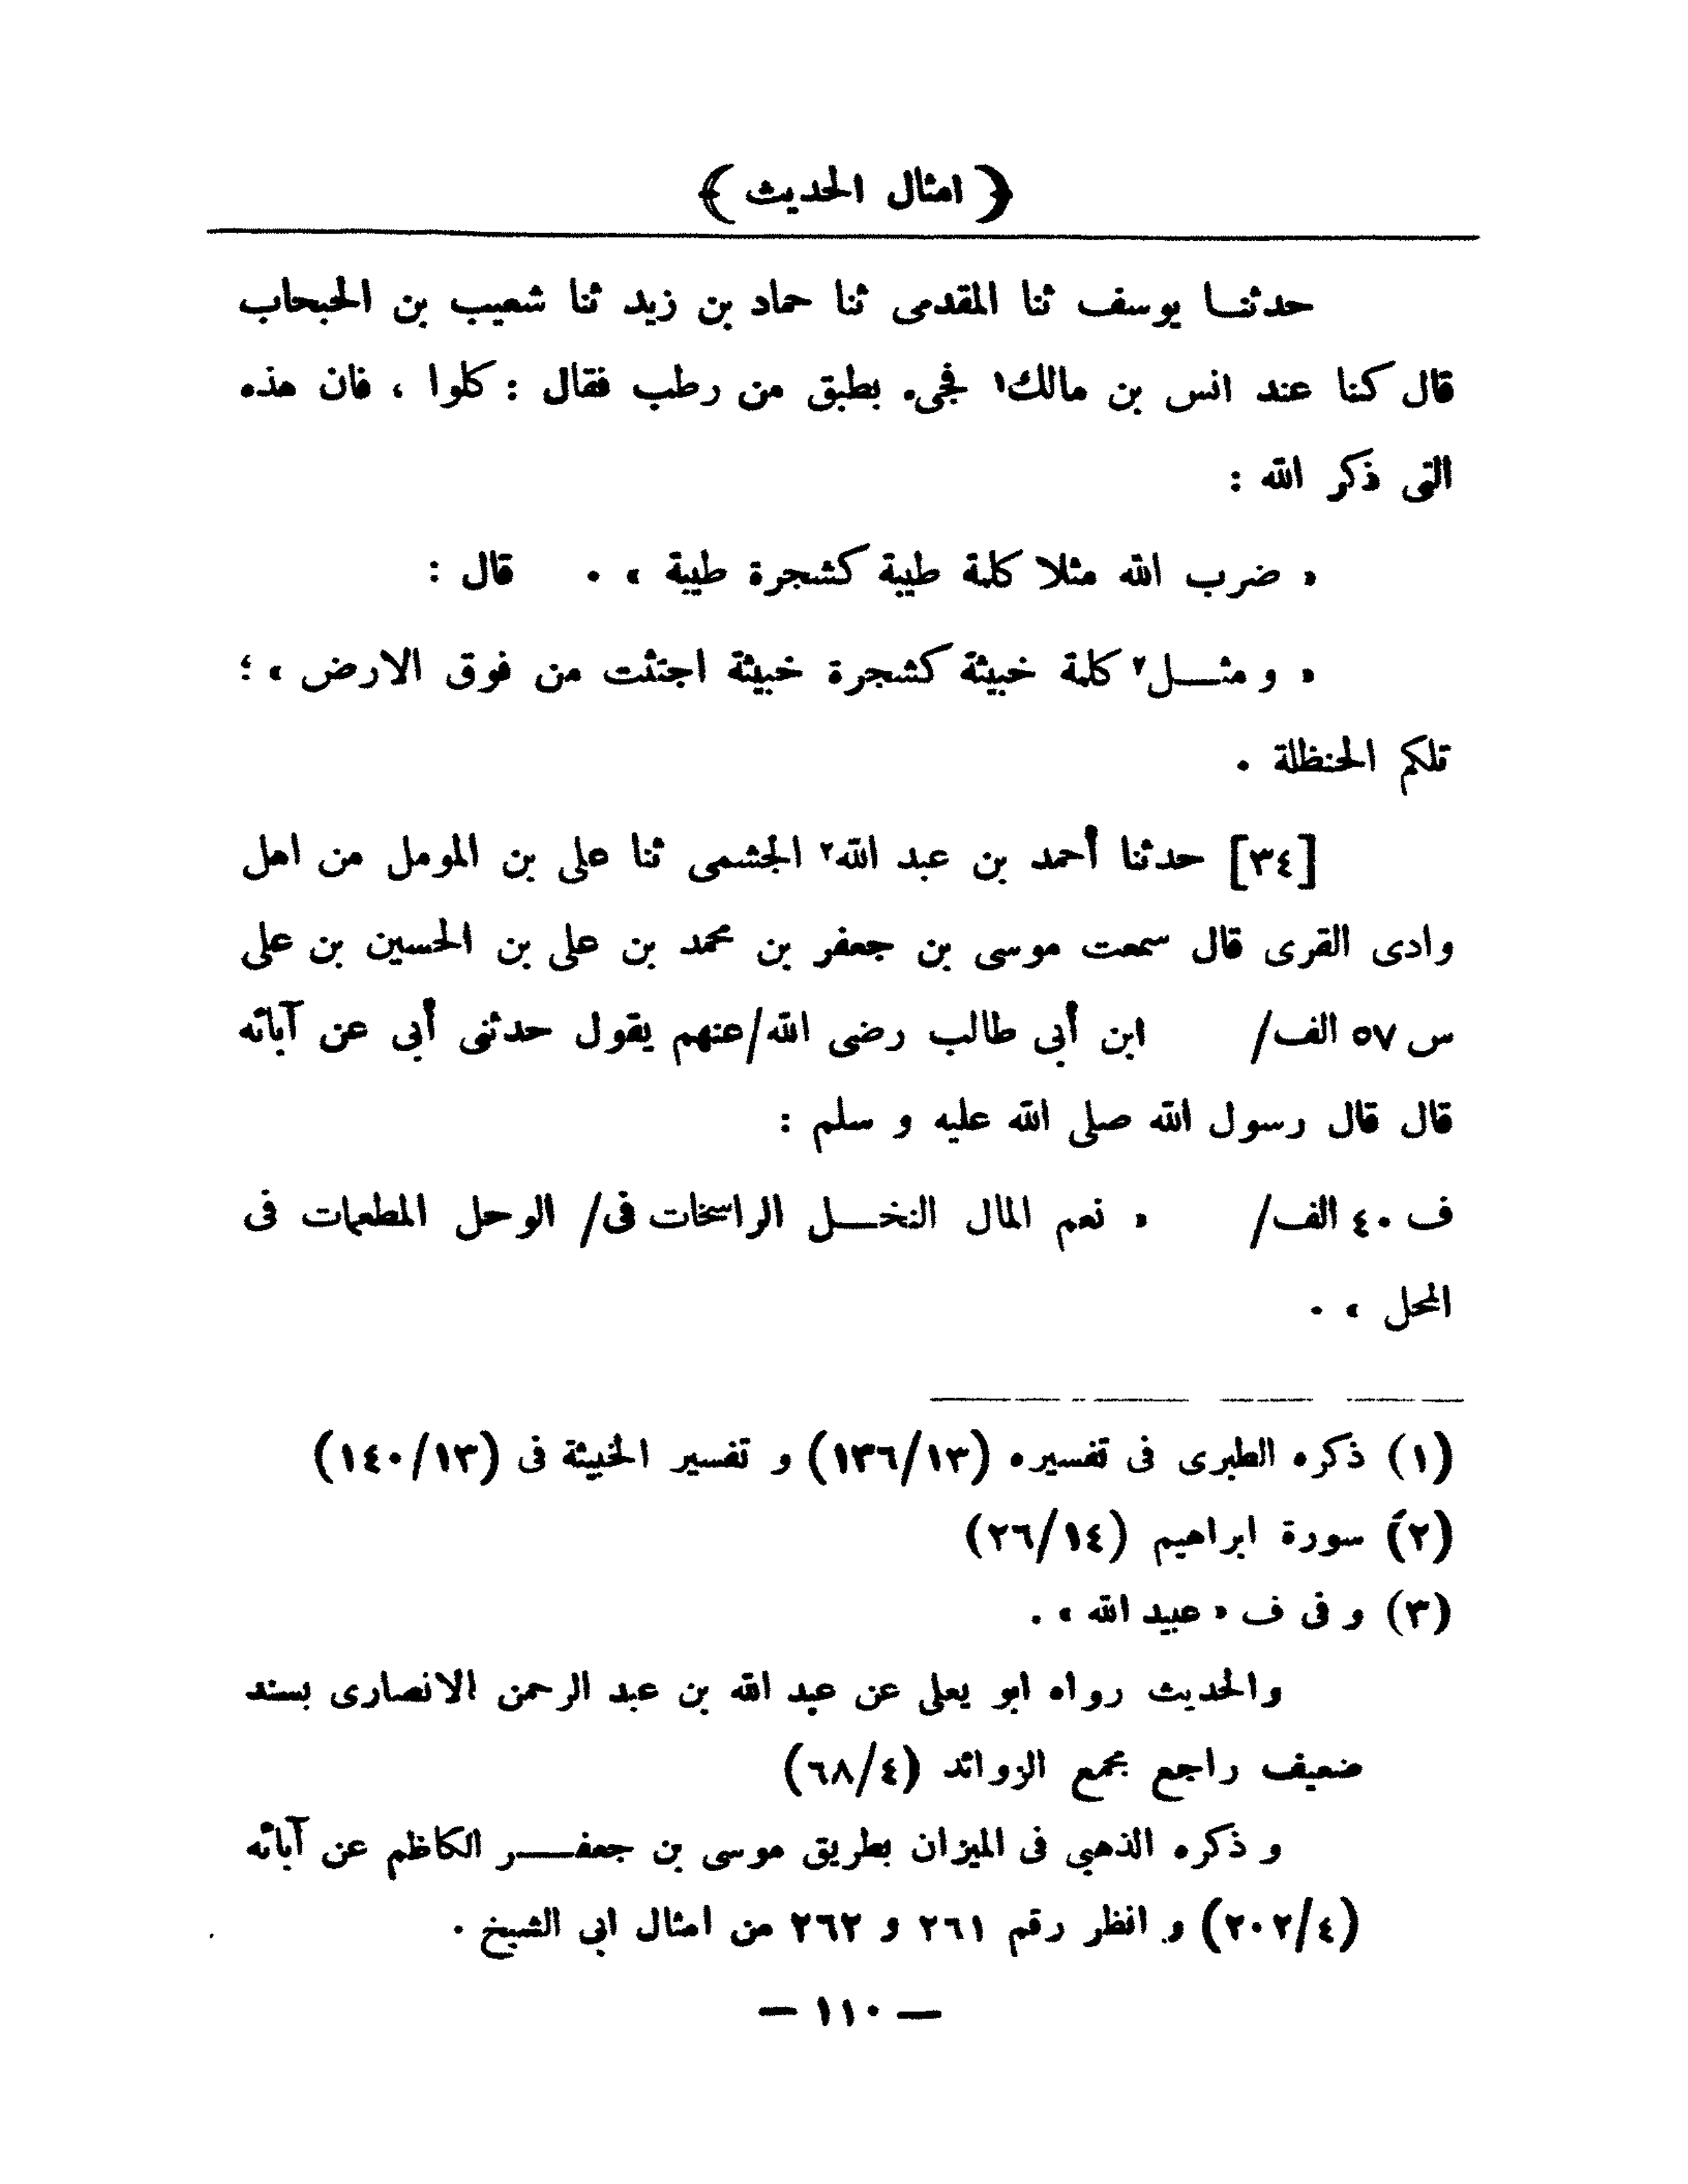 ﴿ امثال الحديث ﴾
حدثنـا يوسف ثنا المقدمى ثنا حماد بن زيد ثنا شعيب بن الحبحاب
قال كنا عند انس بن مالك١ فجىء بطبق من رطب فقال : كلوا ، فان هذه
التى ذكر الله :
« ضرب الله مثلا كلمة طيبة كشجرة طيبة » . قال :
« و مثـــل٢ كلمة خبيثة كشجرة خبيثة اجتثت من فوق الارض » ؛
تلكم الحنظلة .
[٣٤] حدثنا أحمد بن عبد الله٢ الجشمى ثنا على بن المومل من اهل
وادى القرى قال سمعت موسى بن جعفر بن محمد بن على بن الحسين بن على
س ٥٧ الف/ ابن أبى طالب رضى الله/عنهم يقول حدثنى أبى عن آبائه
قال قال رسول الله صلى الله عليه و سلم :
ف ٤٠ الف/ « نعم المال النخـــل الراسخات فى/ الوحل المطعمات فى
المحل » .
(١) ذكره الطبرى فى تفسيره (١٣٦/١٣) و تفسير الخبيثة فى (١٤٠/١٣)
(٢) سورة ابراهيم (٢٦/١٤)
(٣) و فى ف « عبيد الله » .
والحديث رواه ابو يعلى عن عبد الله بن عبد الرحمن الانصارى بسند
ضعيف راجع مجمع الزوائد (٦٨/٤)
و ذكره الذهبى فى الميزان بطريق موسى بن جعفـــر الكاظم عن آبائه
(٢٠٢/٤) و انظر رقم ٢٦١ و ٢٦٢ من امثال ابى الشيخ .
— ١١٠ —